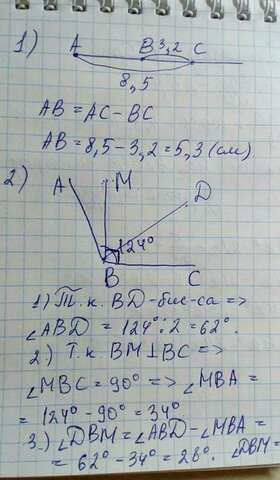 1) A B 3,2 C
8,5
AB = AC - BC
AB = 8,5 - 3,2 = 5,3 (см).
2) A M D
124°
B C
1) Т.к. BD-бис-са =>
∠ABD = 124° : 2 = 62°.
2) Т.к. BM⊥BC =>
∠MBC = 90° => ∠MBA =
= 124° - 90° = 34°.
3.) ∠DBM = ∠ABD - ∠MBA =
= 62° - 34° = 28°. ∠DBM =